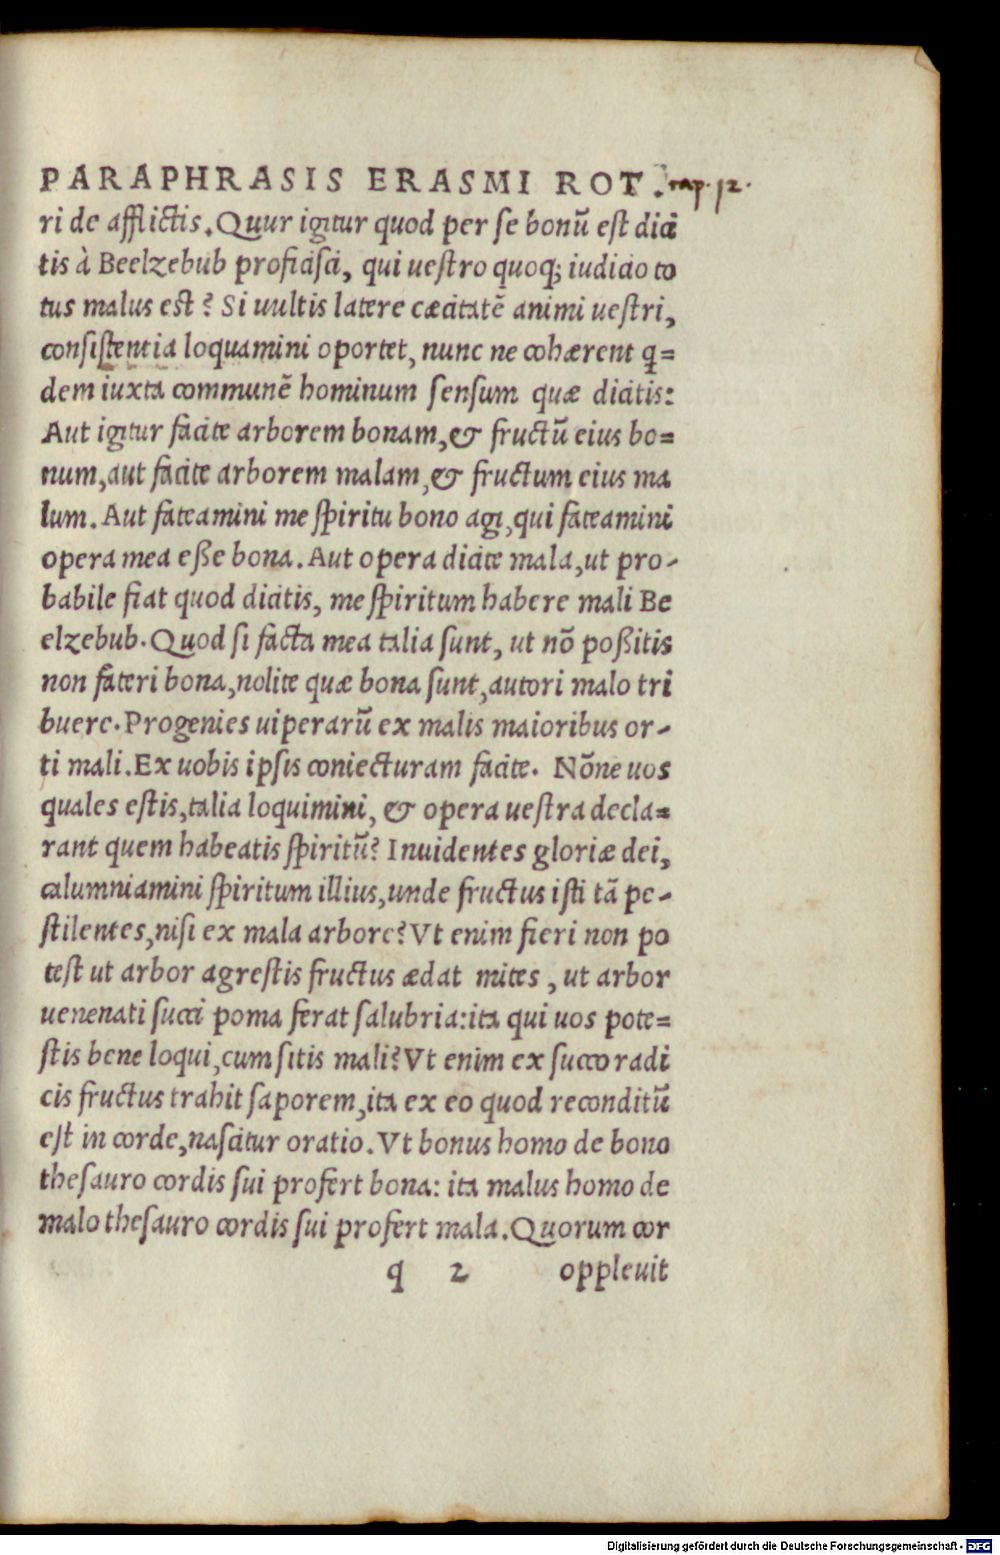 PARAPHRASIS ERASMI ROT. cap. 12.
ri de afflictis. Quur igitur quod per se bonũ est dici
tis à Beelzebub proficisci, qui uestro quoq; iudicio to
tus malus est? Si uultis latere cæcitatẽ animi uestri,
consistentia loquamini oportet, nunc ne cohærent q=
dem iuxta communẽ hominum sensum quæ dicitis:
Aut igitur facite arborem bonam, & fructũ eius bo=
num, aut facite arborem malam, & fructum eius ma
lum. Aut fateamini me spiritu bono agi, qui fateamini
opera mea esse bona. Aut opera dicite mala, ut pro-
babile fiat quod dicitis, me spiritum habere mali Be
elzebub. Quod si facta mea talia sunt, ut nõ possitis
non fateri bona, nolite quæ bona sunt, autori malo tri
buere. Progenies uiperarũ ex malis maioribus or-
ti mali. Ex uobis ipsis coniecturam facite. Nõne uos
quales estis, talia loquimini, & opera uestra decla=
rant quem habeatis spiritũ? Inuidentes gloriæ dei,
calumniamini spiritum illius, unde fructus isti tã pe-
stilentes, nisi ex mala arbore? Vt enim fieri non po
test ut arbor agrestis fructus ædat mites, ut arbor
uenenati succi poma ferat salubria: ita qui uos pote=
stis bene loqui, cum sitis mali? Vt enim ex succo radi
cis fructus trahit saporem, ita ex eo quod reconditũ
est in corde, nascitur oratio. Vt bonus homo de bono
thesauro cordis sui profert bona: ita malus homo de
malo thesauro cordis sui profert mala. Quorum cor
q 2 oppleuit
Digitalisierung gefördert durch die Deutsche Forschungsgemeinschaft - DFG